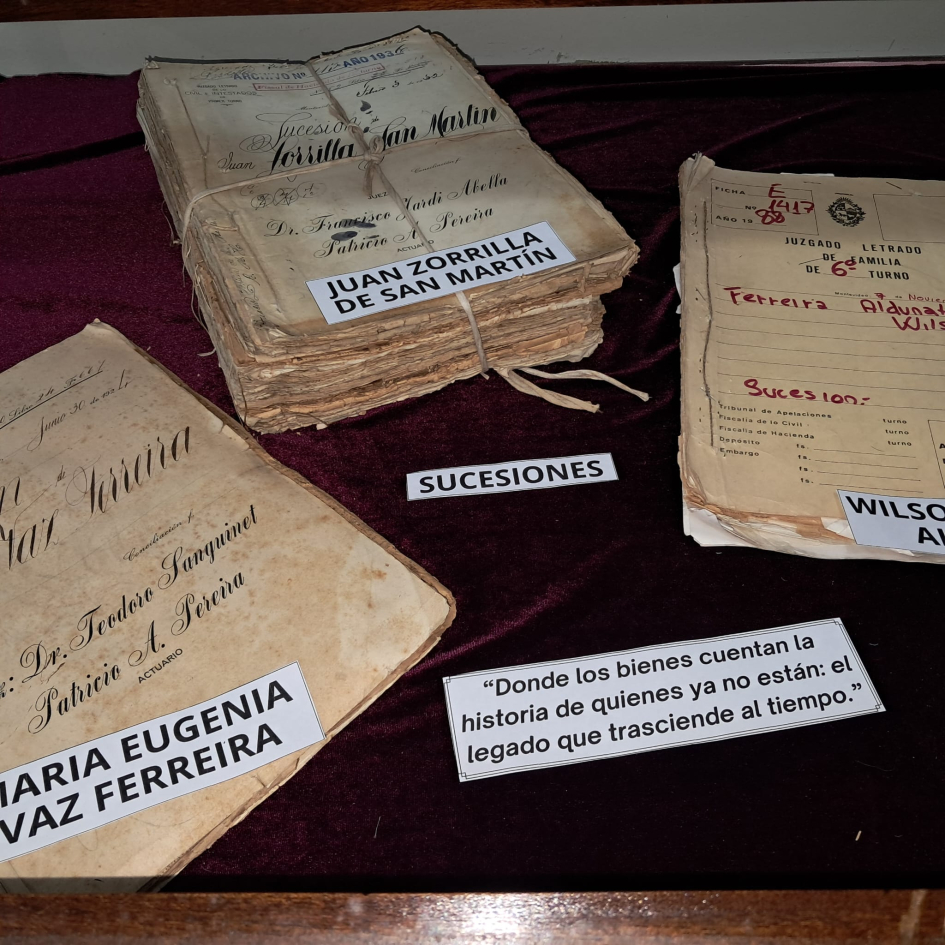 ARCHIVO Nº
AÑO 193
Sucesión de
Juan Zorrilla de San Martín
Conciliación f
JUEZ
Dr. Francisco Jardi Abella
Patricio A. Pereira
ACTUARIO
JUAN ZORRILLA
DE SAN MARTÍN
FICHA E
Nº 1417
AÑO 19 88
JUZGADO LETRADO
DE FAMILIA
DE 6º TURNO
Montevideo, 7 de Novie
Ferreira Aldunat
Wils
Sucesion:-
Tribunal de Apelaciones turno
Fiscalía de lo Civil turno
Fiscalía de Hacienda turno
Depósito fs.
Embargo fs.
fs.
WILSO
Al
SUCESIONES
Junio 30 de 192
de
Vaz Ferreira
Conciliación f
Dr. Teodoro Sanguinet
Patricio A. Pereira
ACTUARIO
MARIA EUGENIA
VAZ FERREIRA
“Donde los bienes cuentan la
historia de quienes ya no están: el
legado que trasciende al tiempo.”